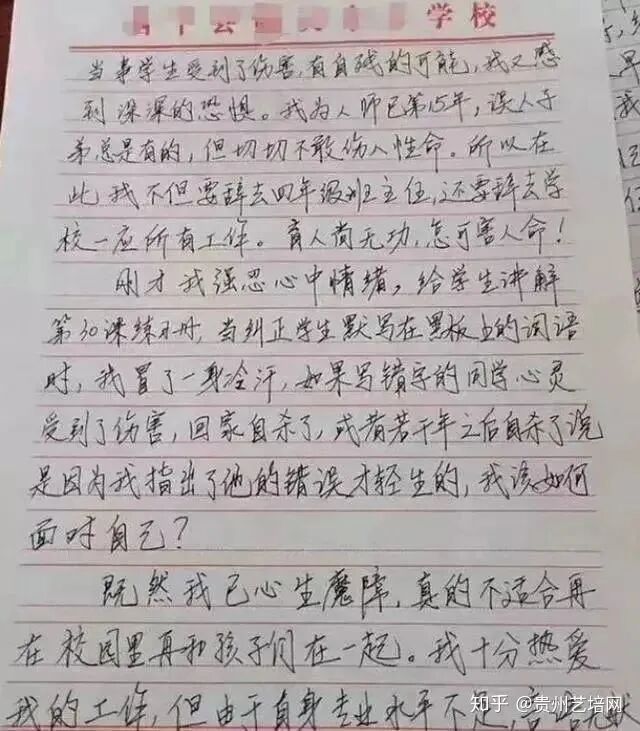 学校
当事学生受到了伤害,有自残的可能,我又感
到深深的恐惧。我为人师已第15年,误人子
弟总是有的,但切切不敢伤人性命。所以在
此我不但要辞去四年级班主任,还要辞去学
校一应所有工作。育人尚无功,怎可害人命!
刚才我强忍心中情绪,给学生讲解
第30课练习册,当纠正学生默写在黑板上的词语
时,我冒了一身冷汗,如果写错字的同学心灵
受到了伤害,回家自杀了,或者若干年之后自杀了说
是因为我指出了他的错误才轻生的,我该如何
面对自己?
既然我已心生魔障,真的不适合再
在校园里再和孩子们在一起。我十分热爱
我的工作,但由于自身专业水平不足,言语
知乎 @贵州艺培网